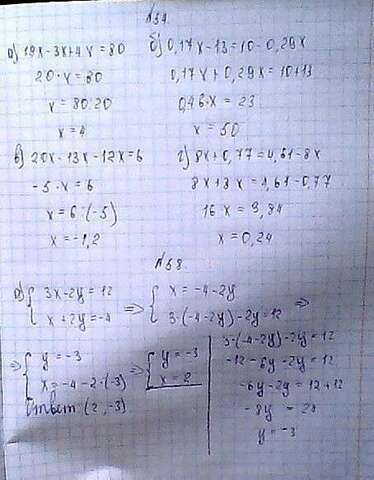 №37.
а) 19x-3x+4x=80
20·x=80
x=80:20
x=4
б) 0,17x-13=10-0,29x
0,17x+0,29x=10+13
0,46·x=23
x=50
в) 20x-13x-12x=6
-5·x=6
x=6:(-5)
x=-1,2
г) 8x+0,77=4,61-8x
8x+8x=4,61-0,77
16x=3,84
x=0,24
№38.
а) { 3x-2y=12 => { x=-4-2y =>
x+2y=-4 3·(-4-2y)-2y=12
=> { y=-3 => { y=-3
x=-4-2·(-3) x=2
Ответ (2,-3)
3·(-4-2y)-2y=12
-12-6y-2y=12
-6y-2y=12+12
-8y=24
y=-3